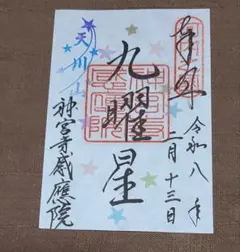 奉拝
令和八年
二月十三日
九曜星
天川山
神宮寺感應院